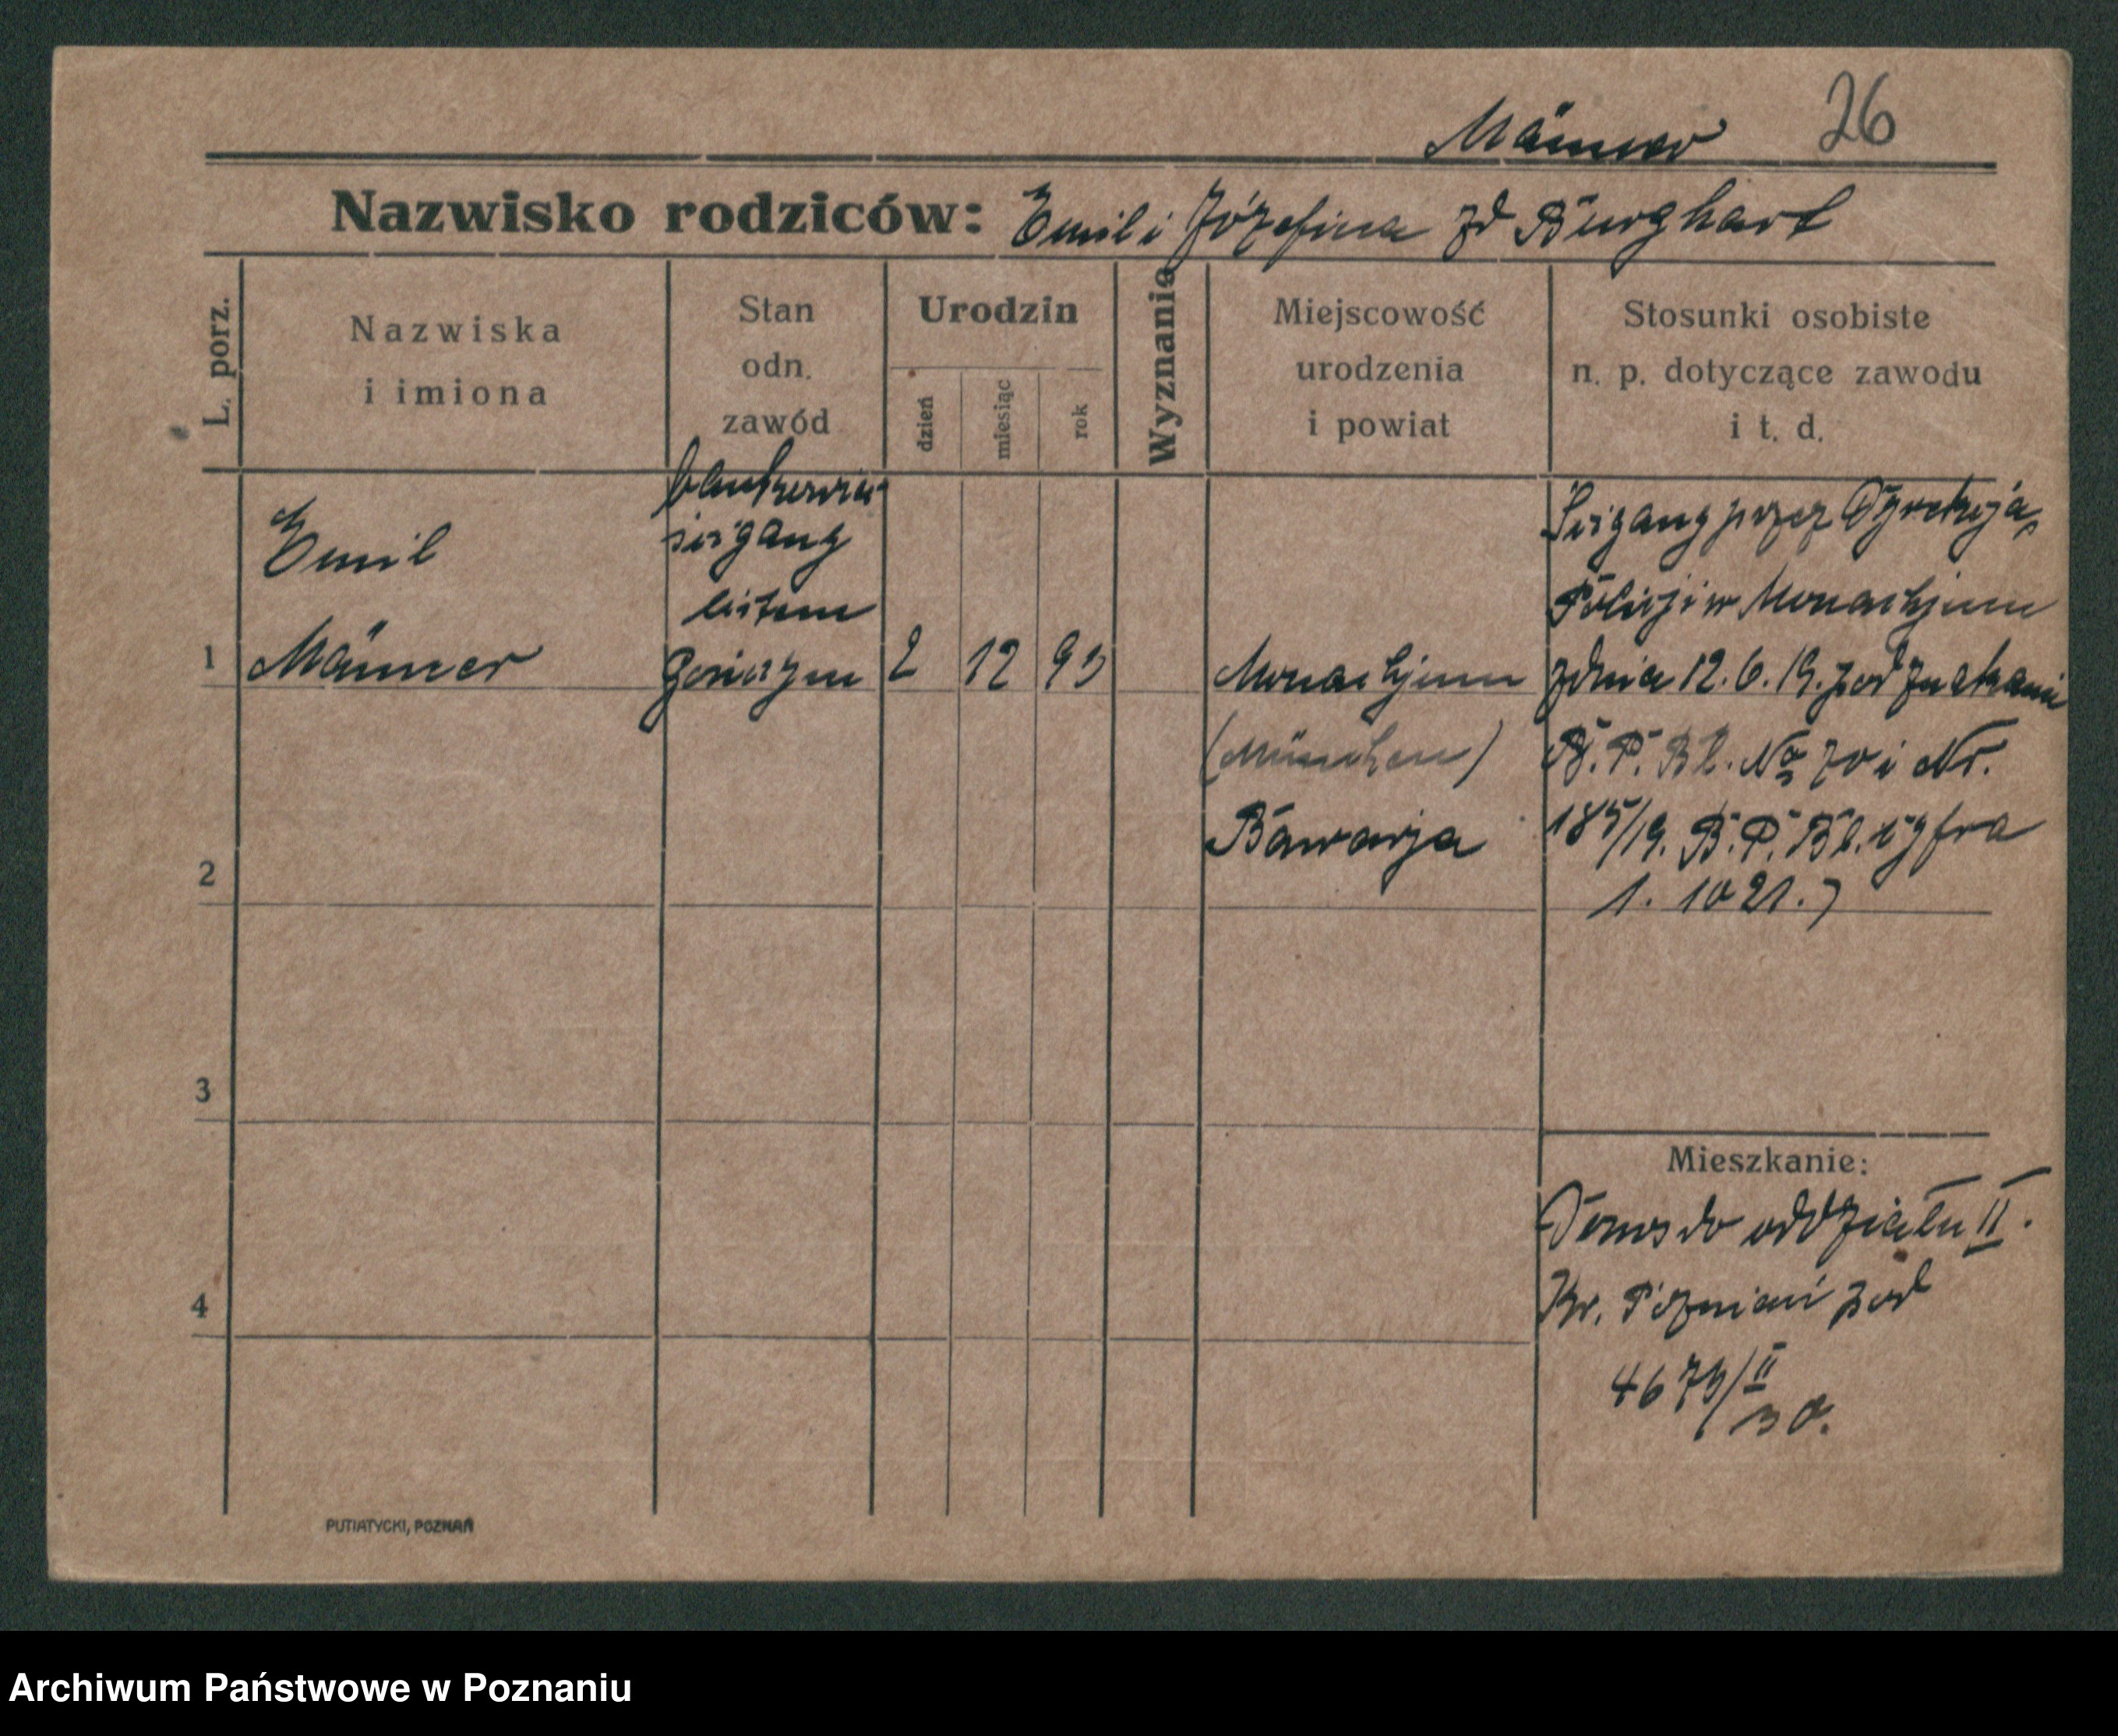 Männer 26
Nazwisko rodziców: Emil i Józefina zd Burghart
L. porz.
Nazwiska
i imiona
Stan
odn.
zawód
Urodzin
dzień
miesiąc
rok
Wyznanie
Miejscowość
urodzenia
i powiat
Stosunki osobiste
n. p. dotyczące zawodu
i t. d.
1
Emil
Männer
ścigany
listem
gończym
2 12 93
Monachjum
(München)
Bawarja
Ścigany przez Dyrekcją
Policji w Monachjum
z dnia 12. 6. 19. pod znakami
B. P. Bl. No 70 i Nr.
185/19. B. P. Bl. cyfra
1. 1021.
2
3
4
Mieszkanie:
Donos do oddziału II.
Kr. Poznań pod
4679/II
30.
PUTIATYCKI, POZNAŃ
Archiwum Państwowe w Poznaniu